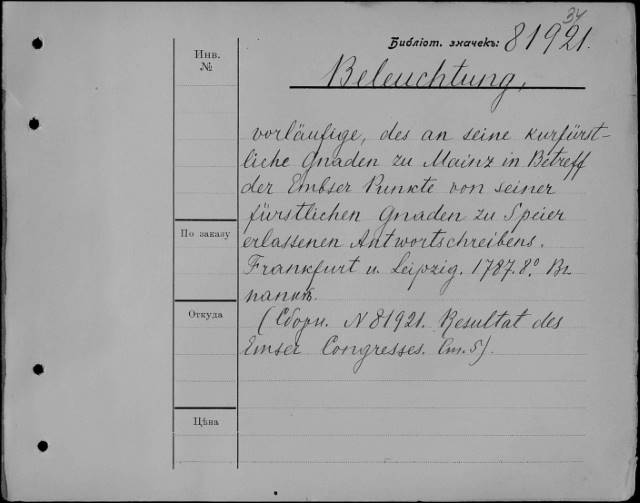 34
Библіот. значекъ: 81921.
Инв.
№
Beleuchtung,
vorläufige, des an seine kurfürst-
liche Gnaden zu Mainz in Betreff
der Embser Punkte von seiner
fürstlichen Gnaden zu Speier
По заказу
erlassenen Antwortschreibens.
Frankfurt u. Leipzig. 1787. 8º Въ
папкѣ.
Откуда
(Сборн. N 81921. Resultat des
Emser Congresses. Cm. 5).
Цѣна